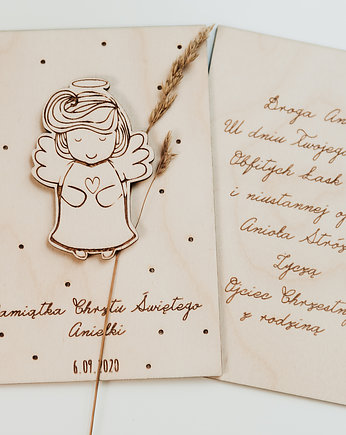 Pamiątka Chrztu Świętego
Anielki
6.09.2020
Droga
W dniu Twojego
Obfitych Łask
i nieustannej
Anioła
Życzą
Ojciec
z rodziną